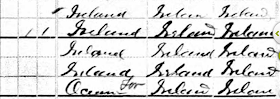 Ireland Ireland Ireland
11 Ireland Ireland Ireland
Ireland Ireland Ireland
Ireland Ireland Ireland
Ireland Ireland